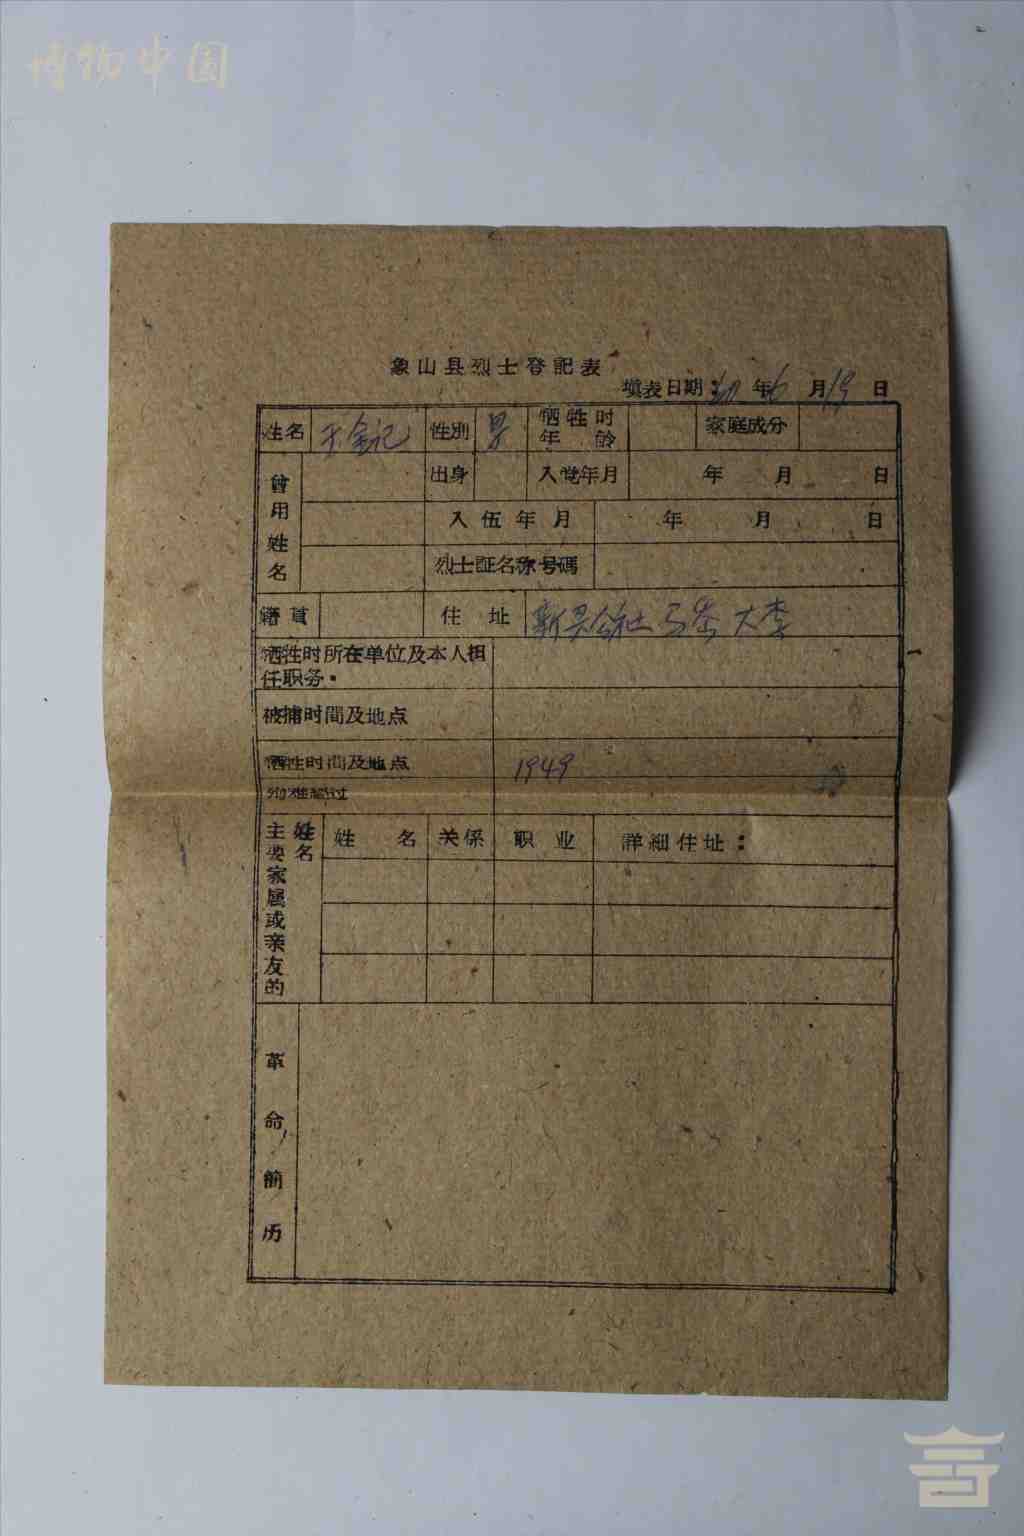 博物中国
象山县烈士登記表
填表日期： 年6月19日
姓名 王金记 性別 男 牺牲时年龄 家庭成分
曾用姓名 出身 入党年月 年 月 日
入伍年月 年 月 日
烈士証名称号碼
籍貫 住址 新吴公社 大李
牺牲时所在单位及本人担
任职务．
被捕时間及地点
牺牲时间及地点 1949
殉难經过
主要家属或亲友的姓名 姓名 关係 职业 詳細住址：
革命簡历